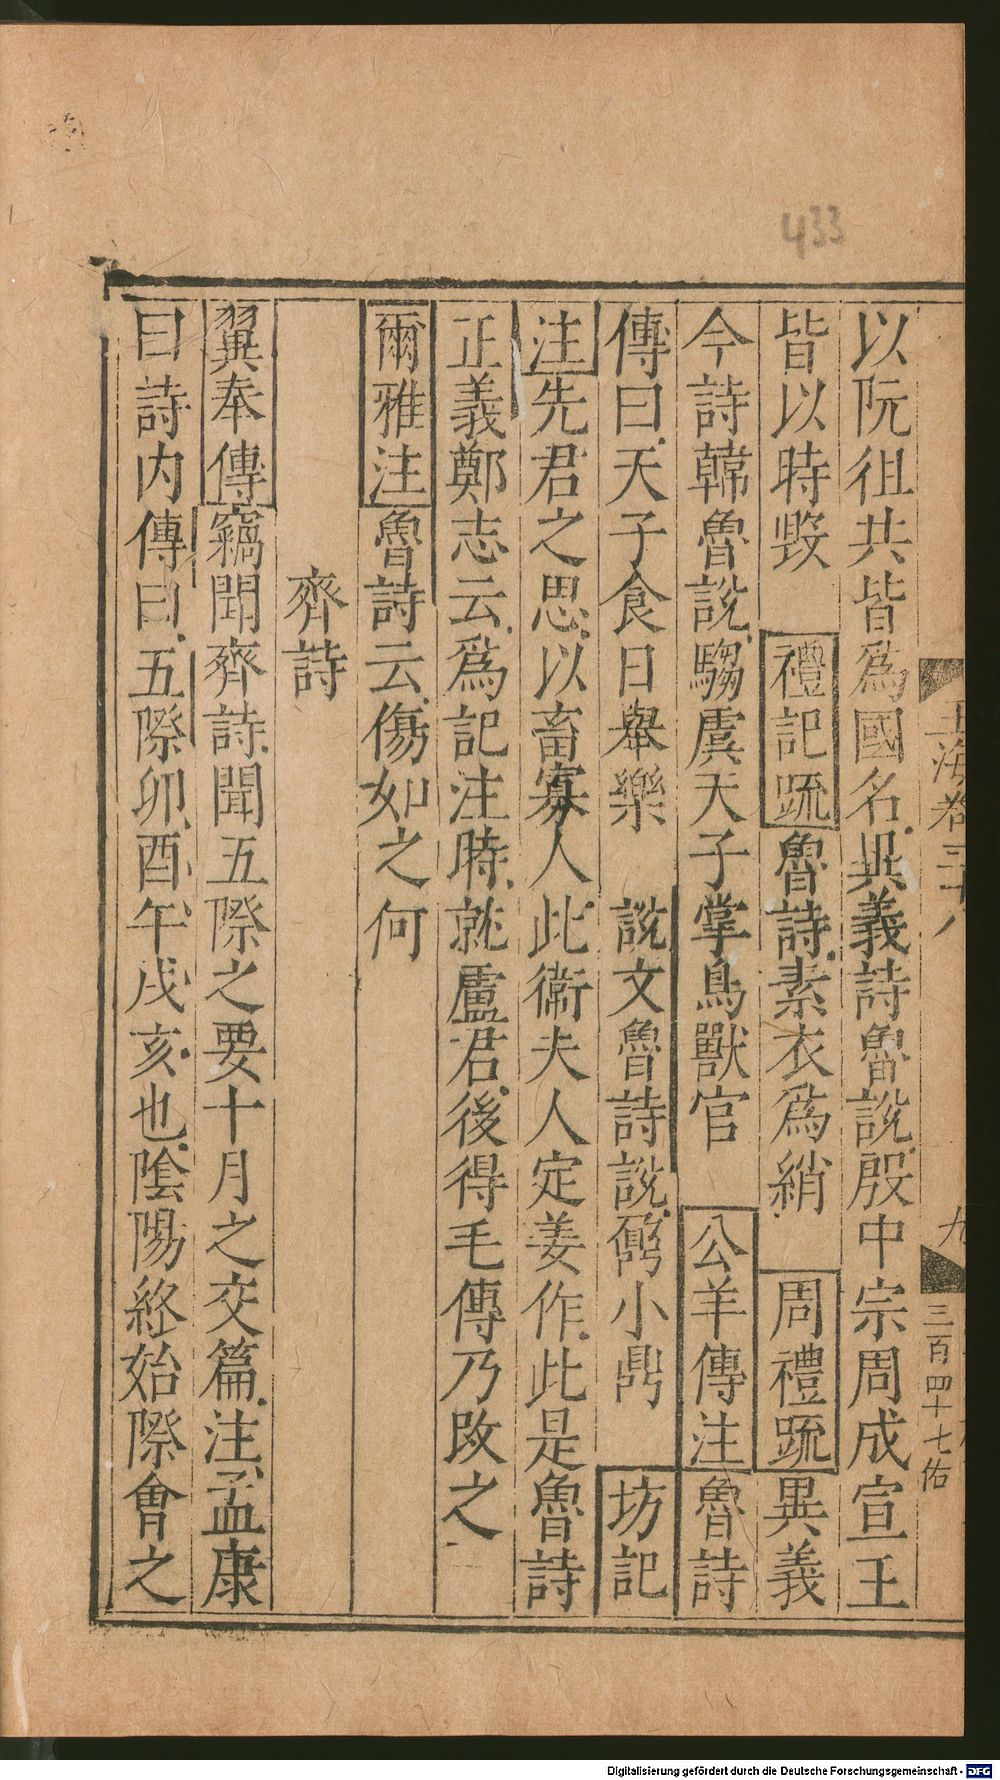 433
玉海卷三十八
九
三百四十七佑
以阮徂共皆爲國名異義詩魯說殷中宗周成宣王
皆以時毀　禮記疏魯詩素衣爲綃　周禮疏異義
今詩韓魯說騶虞天子掌鳥獸官　公羊傳注魯詩
傳曰天子食日舉樂　說文魯詩說鼐小鼎　坊記
注先君之思以畜寡人此衛夫人定姜作此是魯詩
正義鄭志云爲記注時就盧君後得毛傳乃改之
爾雅注魯詩云傷如之何
齊詩
翼奉傳竊聞齊詩聞五際之要十月之交篇注孟康
曰詩內傳曰五際卯酉午戌亥也陰陽終始際會之
Digitalisierung gefördert durch die Deutsche Forschungsgemeinschaft - DFG